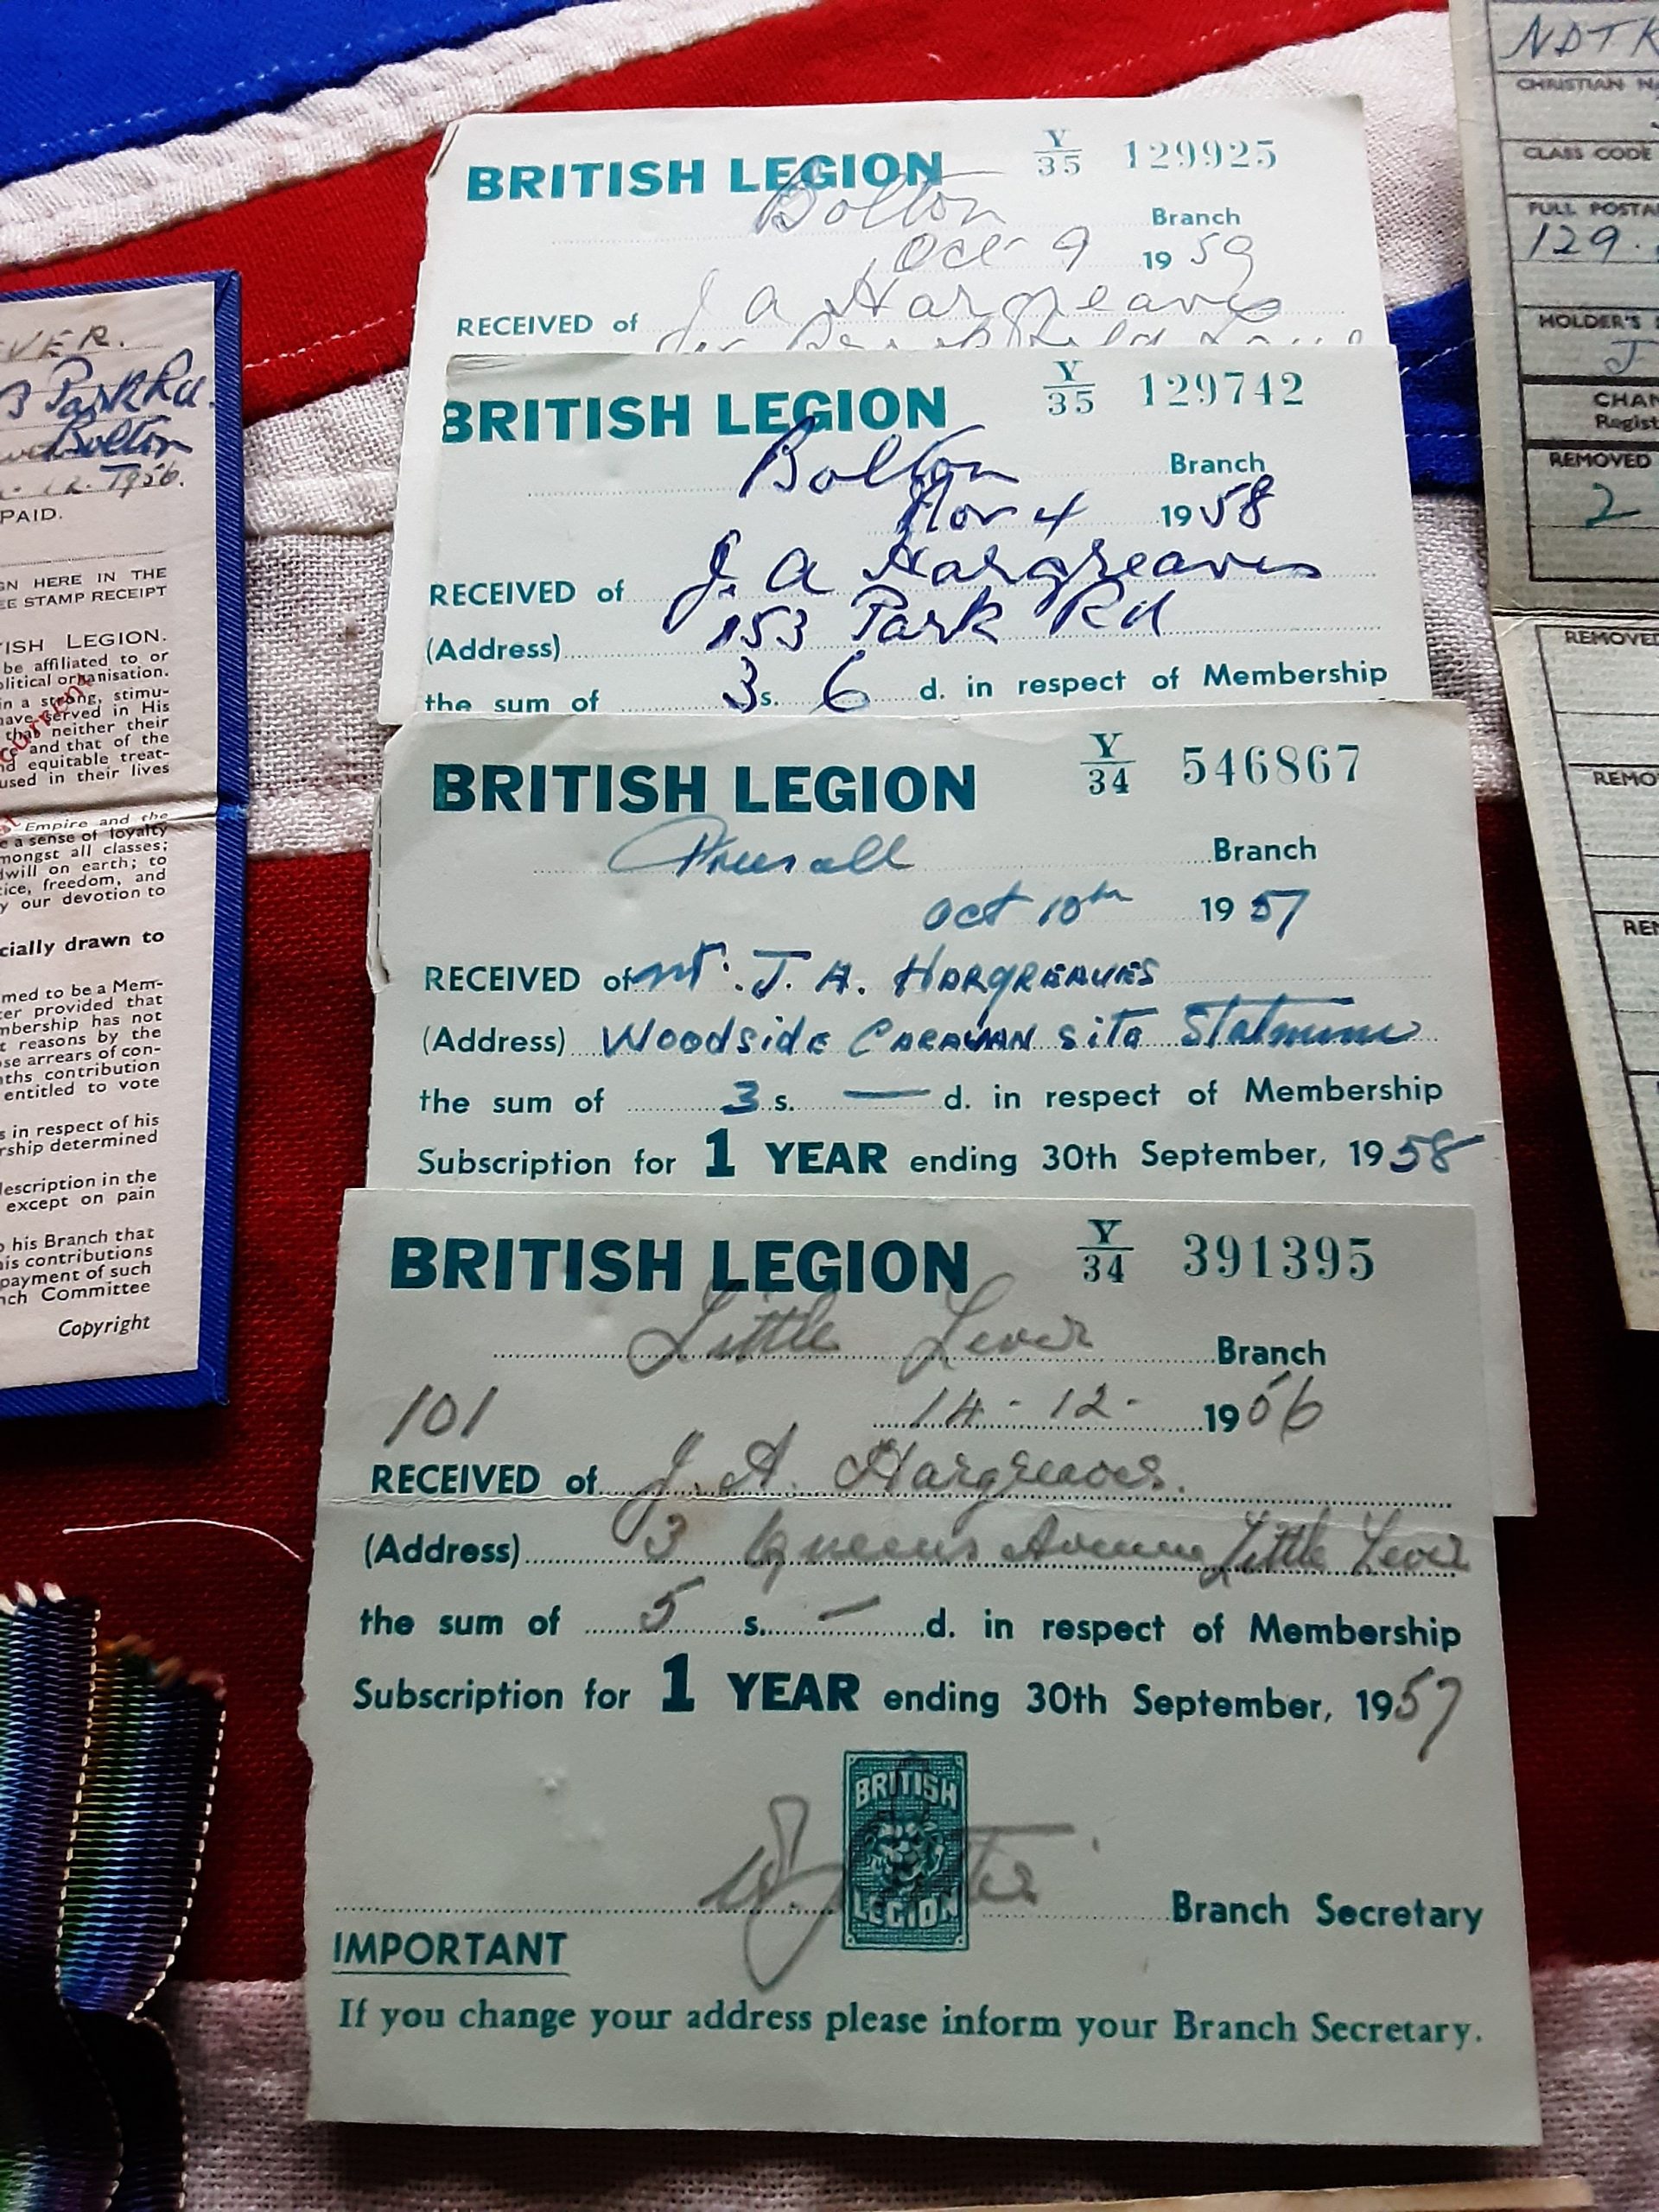 BRITISH LEGION Y/35 129925
Bolton Branch
Oct 9 1959
RECEIVED of J a Hargreaves
BRITISH LEGION Y/35 129742
Bolton Branch
Nov 4 1958
RECEIVED of J. a Hargreaves
(Address) 153 Park Rd
the sum of 3 s. 6 d. in respect of Membership
BRITISH LEGION Y/34 546867
Preesall Branch
oct 10th 1957
RECEIVED of Mr. J. A. HARGREAVES
(Address) Woodside CARAVAN Site
the sum of 3 s. — d. in respect of Membership
Subscription for 1 YEAR ending 30th September, 1958
BRITISH LEGION Y/34 391395
Little Lever Branch
101 14-12-1956
RECEIVED of J. A. Hargreaves.
(Address) 3 Queens Avenue Little Lever
the sum of 5 s. — d. in respect of Membership
Subscription for 1 YEAR ending 30th September, 1957
BRITISH
LEGION
Branch Secretary
IMPORTANT
If you change your address please inform your Branch Secretary.
VER.
3 Park Rd.
Bolton
1956.
PAID.
GN HERE IN THE
EE STAMP RECEIPT
ISH LEGION.
be affiliated to or
litical organisation.
in a strong, stimu-
have served in His
that neither their
and that of the
nd equitable treat-
used in their lives
Empire and the
e a sense of loyalty
mongst all classes;
dwill on earth; to
ice, freedom, and
y our devotion to
cially drawn to
med to be a Mem-
ter provided that
mbership has not
t reasons by the
ose arrears of con-
ths contribution
entitled to vote
s in respect of his
rship determined
description in the
except on pain
o his Branch that
his contributions
payment of such
nch Committee
Copyright
NDTK
CHRISTIAN NA
CLASS CODE
FULL POSTA
129.
HOLDER'S
J
CHAN
Regist
REMOVED
2
REMOVED
REMO
REM